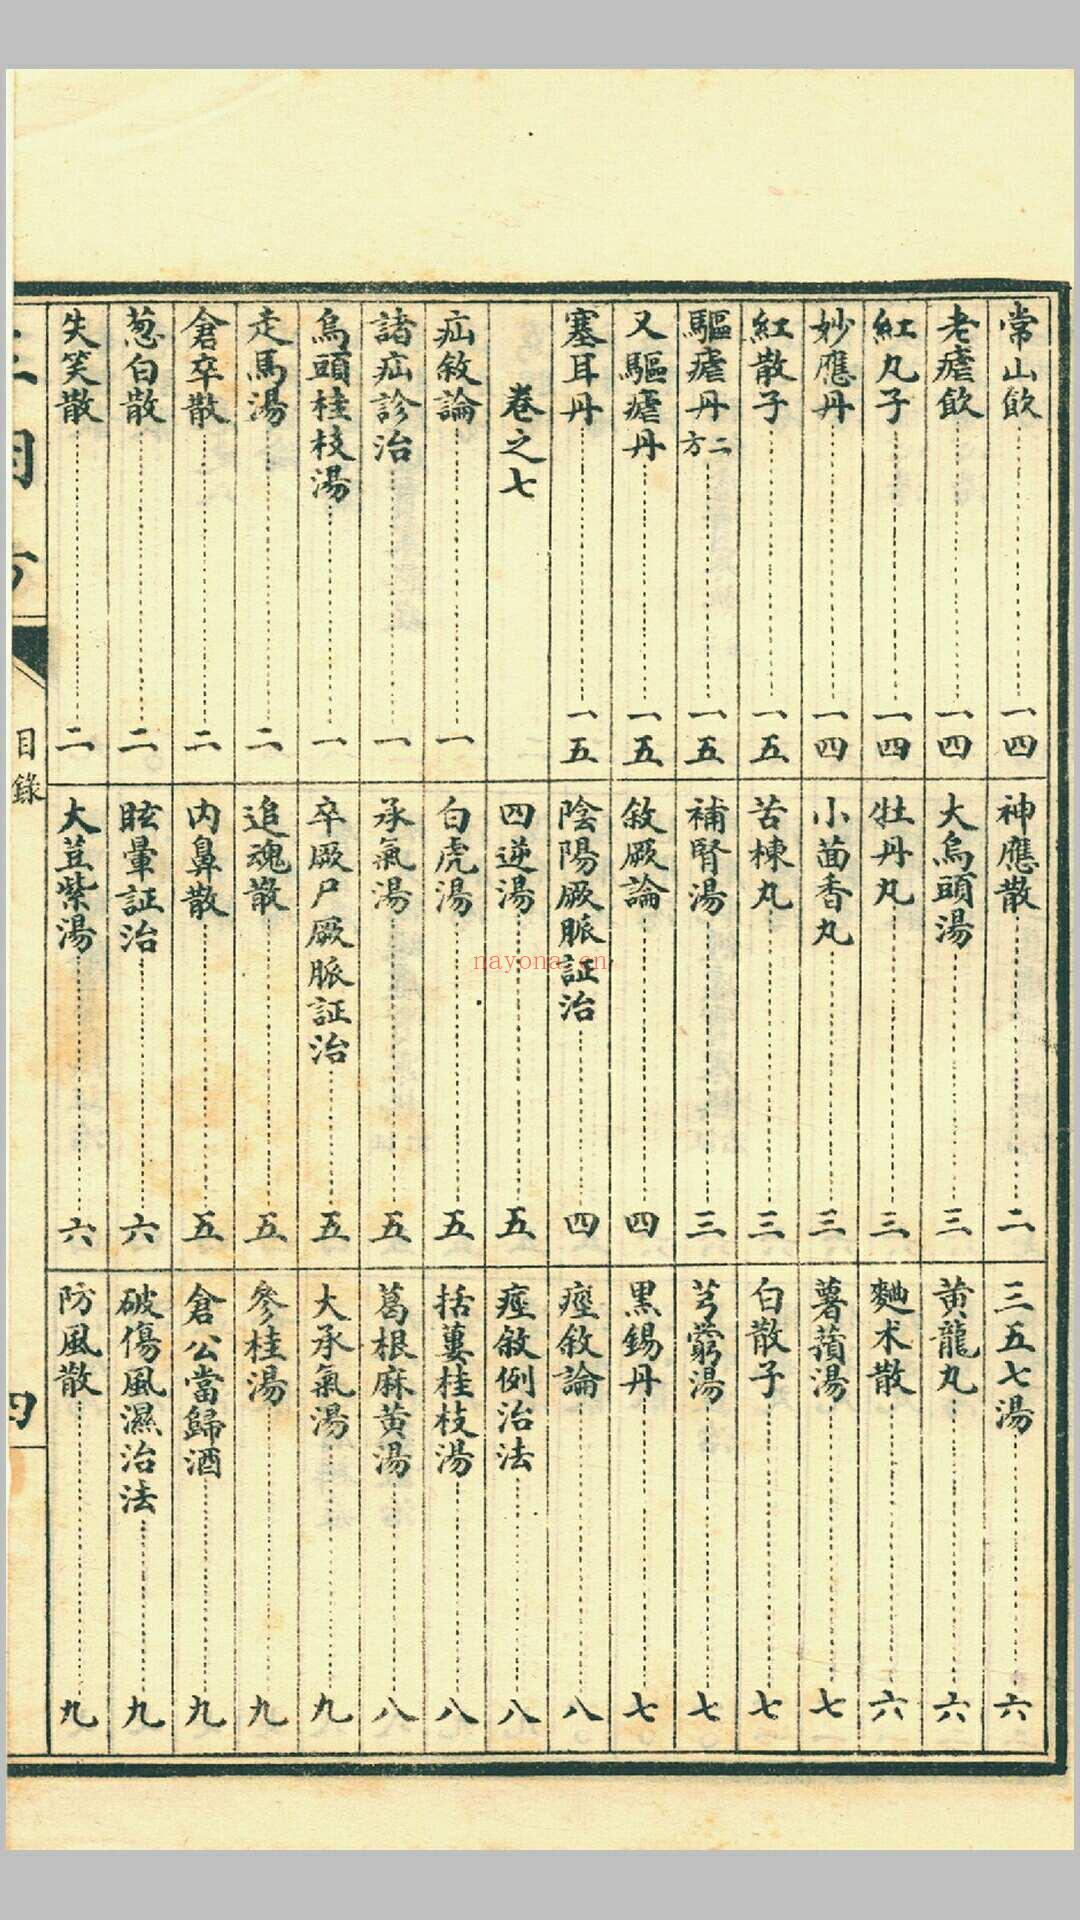 常山飲 一四
老瘧飲 一四
紅丸子 一四
妙應丹 一四
紅散子 一五
驅瘧丹二方 一五
又驅瘧丹 一五
塞耳丹 一五
卷之七
疝敘論 一
諸疝診治 一
烏頭桂枝湯 一
走馬湯 二
倉卒散 二
葱白散 二
失笑散 二
神應散 二
大烏頭湯 三
牡丹丸 三
小茴香丸 三
苦楝丸 三
補腎湯 三
敘厥論 四
陰陽厥脈証治 四
四逆湯 五
白虎湯 五
承氣湯 五
卒厥尸厥脈証治 五
追魂散 五
內鼻散 五
眩暈証治 六
大荳紫湯 六
三五七湯 六
黃龍丸 六
麴朮散 六
薯蕷湯 七
白散子 七
芎藭湯 七
黑錫丹 七
痙敘論 八
痙敘例治法 八
括蔞桂枝湯 八
葛根麻黃湯 八
大承氣湯 九
參桂湯 九
倉公當歸酒 九
破傷風濕治法 九
防風散 九
目錄
四
nayona.cn